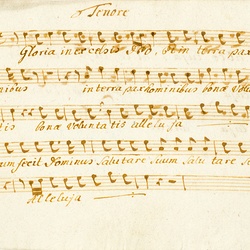 Tenore
Gloria in excelsis Deo, et in terra pax
in terra pax hominibus bonæ volun
tis bonæ voluntatis alleluja
um fecit Dominus salutare suum salutare s
Alleluja